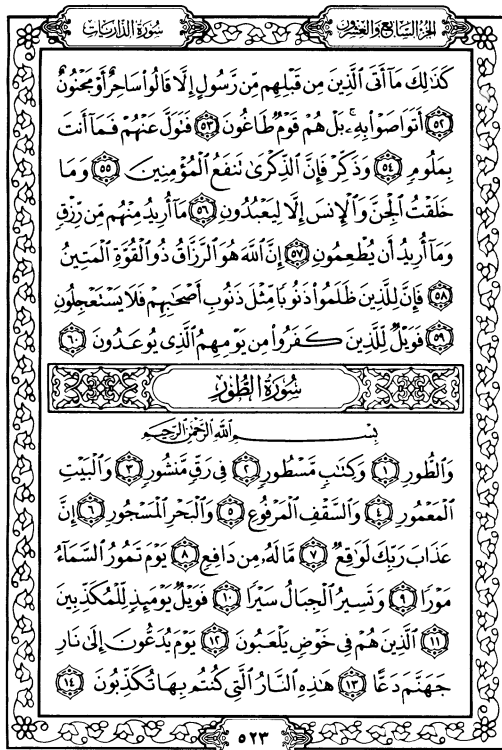 الجُزْءُ السَّابِعُ وَالعِشْرُونَ
سُورَةُ الذَّارِيَاتِ
كَذَٰلِكَ مَآ أَتَى ٱلَّذِينَ مِن قَبْلِهِم مِّن رَّسُولٍ إِلَّا قَالُوا۟ سَاحِرٌ أَوْ مَجْنُونٌ
٥٢ أَتَوَاصَوْا۟ بِهِۦ ۚ بَلْ هُمْ قَوْمٌ طَاغُونَ ٥٣ فَتَوَلَّ عَنْهُمْ فَمَآ أَنتَ
بِمَلُومٍ ٥٤ وَذَكِّرْ فَإِنَّ ٱلذِّكْرَىٰ تَنفَعُ ٱلْمُؤْمِنِينَ ٥٥ وَمَا
خَلَقْتُ ٱلْجِنَّ وَٱلْإِنسَ إِلَّا لِيَعْبُدُونِ ٥٦ مَآ أُرِيدُ مِنْهُم مِّن رِّزْقٍ
وَمَآ أُرِيدُ أَن يُطْعِمُونِ ٥٧ إِنَّ ٱللَّهَ هُوَ ٱلرَّزَّاقُ ذُو ٱلْقُوَّةِ ٱلْمَتِينُ
٥٨ فَإِنَّ لِلَّذِينَ ظَلَمُوا۟ ذَنُوبًا مِّثْلَ ذَنُوبِ أَصْحَٰبِهِمْ فَلَا يَسْتَعْجِلُونِ
٥٩ فَوَيْلٌ لِّلَّذِينَ كَفَرُوا۟ مِن يَوْمِهِمُ ٱلَّذِى يُوعَدُونَ ٦٠
سُورَةُ الطُّورِ
بِسْمِ ٱللَّهِ ٱلرَّحْمَٰنِ ٱلرَّحِيمِ
وَٱلطُّورِ ١ وَكِتَٰبٍ مَّسْطُورٍ ٢ فِى رَقٍّ مَّنشُورٍ ٣ وَٱلْبَيْتِ
ٱلْمَعْمُورِ ٤ وَٱلسَّقْفِ ٱلْمَرْفُوعِ ٥ وَٱلْبَحْرِ ٱلْمَسْجُورِ ٦ إِنَّ
عَذَابَ رَبِّكَ لَوَٰقِعٌ ٧ مَّا لَهُۥ مِن دَافِعٍ ٨ يَوْمَ تَمُورُ ٱلسَّمَآءُ
مَوْرًا ٩ وَتَسِيرُ ٱلْجِبَالُ سَيْرًا ١٠ فَوَيْلٌ يَوْمَئِذٍ لِّلْمُكَذِّبِينَ
١١ ٱلَّذِينَ هُمْ فِى خَوْضٍ يَلْعَبُونَ ١٢ يَوْمَ يُدَعُّونَ إِلَىٰ نَارِ
جَهَنَّمَ دَعًّا ١٣ هَٰذِهِ ٱلنَّارُ ٱلَّتِى كُنتُم بِهَا تُكَذِّبُونَ ١٤
٥٢٣